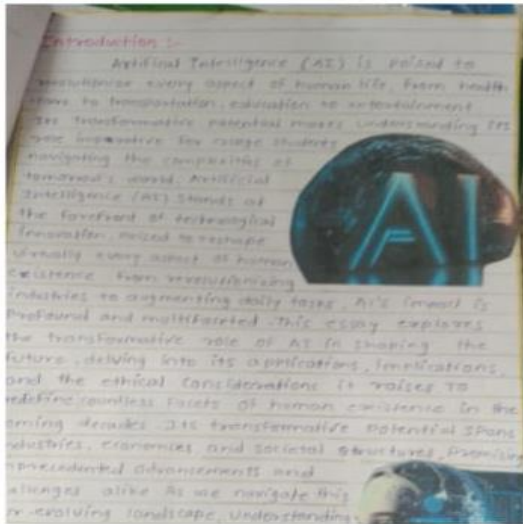 Introduction :-
Artificial Intelligence (AI) is poised to
revolutionize every aspect of human life, from health
care to transportation, education to entertainment
Its transformative potential makes understanding its
role imperative for college students
navigating the complexities of
tomorrow's world. Artificial
Intelligence (AI) Stands at
the forefront of technological
innovation, poised to reshape
virtually every aspect of human
existence from revolutionizing
industries to augmenting daily tasks, AI's impact is
Profound and multifaceted. This essay explores
the transformative role of AI in shaping the
future, delving into its applications, implications,
and the ethical considerations it raises To
redefine countless facets of human existence in the
coming decades. Its transformative potential spans
industries, economies and societal structures, promising
unprecedented advancements and
challenges alike As we navigate this
evolving landscape, understanding
AI